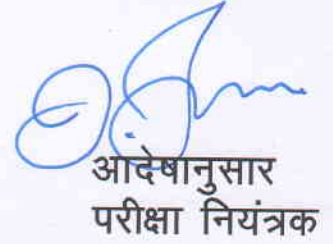 आदेषानुसार
परीक्षा नियंत्रक